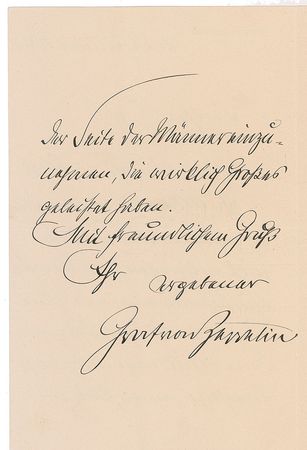 der Seite der Männer einzu-
nehmen, die wirklich Großes
geleistet haben.
Mit freundlichem Gruß
Ihr ergebener
Graf von Zeppelin